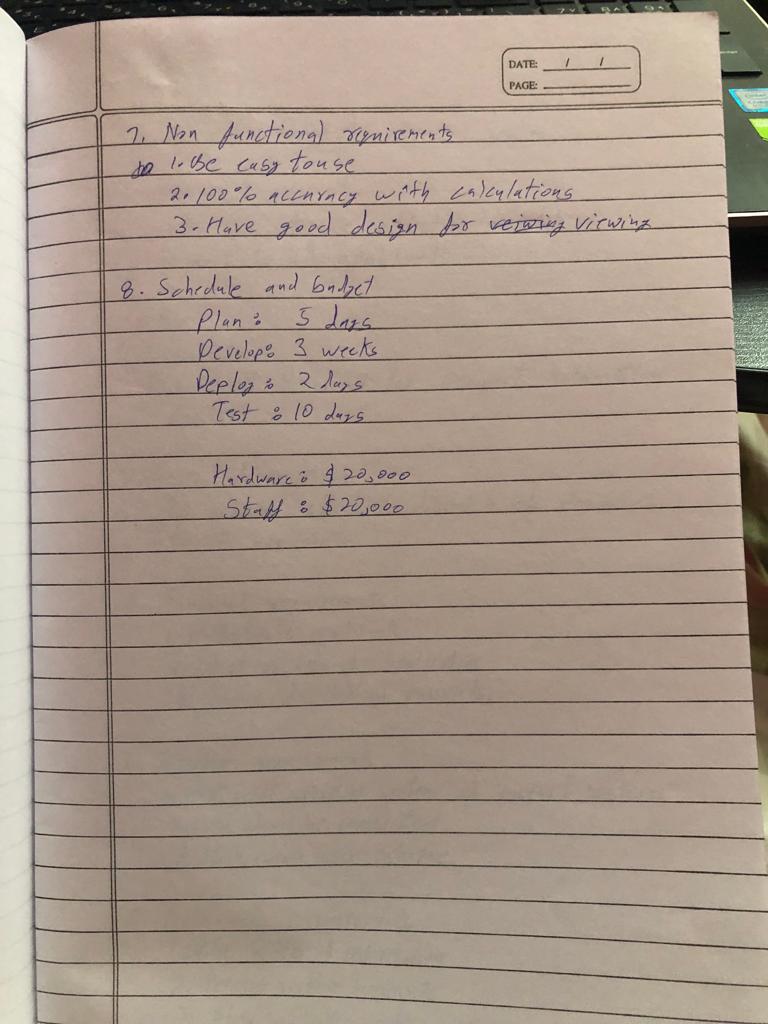 DATE: / /
PAGE:
7. Non functional requirements
1. Be easy to use
2. 100% accuracy with calculations
3. Have good design for veiwing viewing
8. Schedule and budget
Plan: 5 days
Develop: 3 weeks
Deploy: 2 days
Test: 10 days
Hardware: $20,000
Staff: $20,000